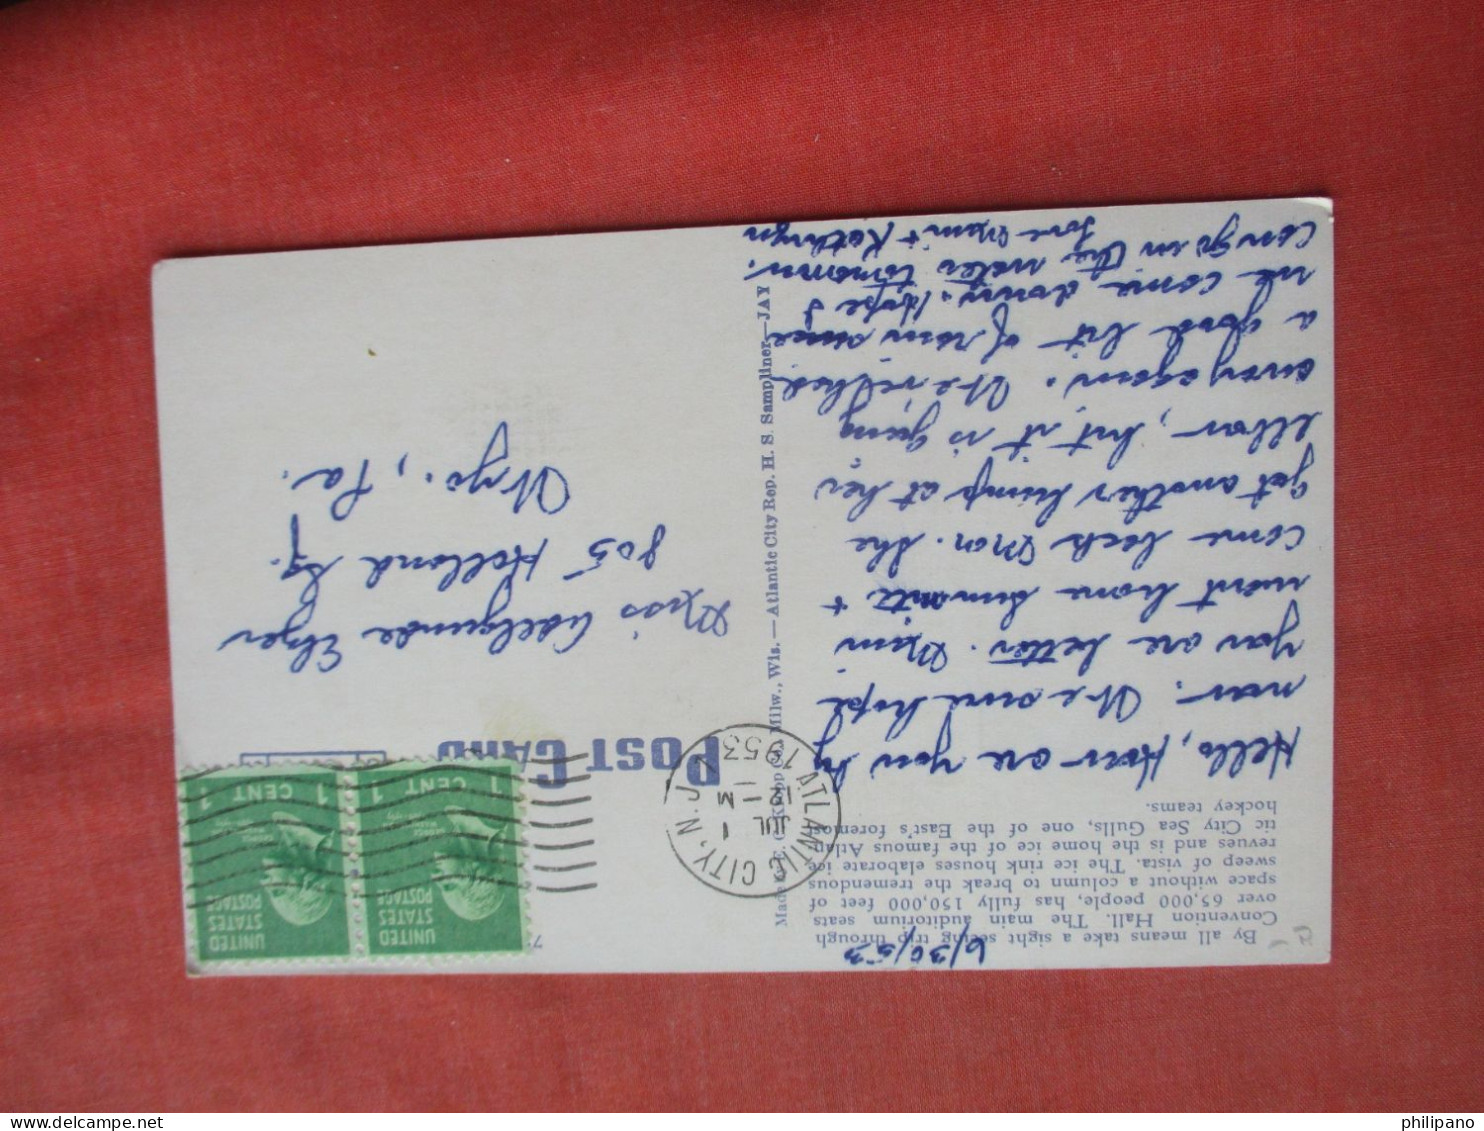 6/30/53
By all means take a sight seeing trip through
Convention Hall. The main auditorium seats
over 65,000 people, has fully 150,000 feet of
space without a column to break the tremendous
sweep of vista. The ice rink houses elaborate ice
revues and is the home ice of the famous Atlan-
tic City Sea Gulls, one of the East's foremost
hockey teams.
Hello, How are you by
now. We sure hope
you are better. Mim
went home +
come back Mon. She
got another bump at her
elbow, but it is going
away again. We
a good bit of rain since
we come down. Hope I
can go in the water tomorrow.
Love Mim + Kathryn
Made by E. C. Kropp Co., Milw., Wis.—Atlantic City Rep. H. S. Sampliner—JAY
POST CARD
ATLANTIC CITY, N.J.
JUL 1
12 M
1953
UNITED
STATES
POSTAGE
1 CENT 1
UNITED
STATES
POSTAGE
1 CENT 1
Miss Adelgunda Elzer
805 Holland Sq.
Wyo., Pa.
philipano